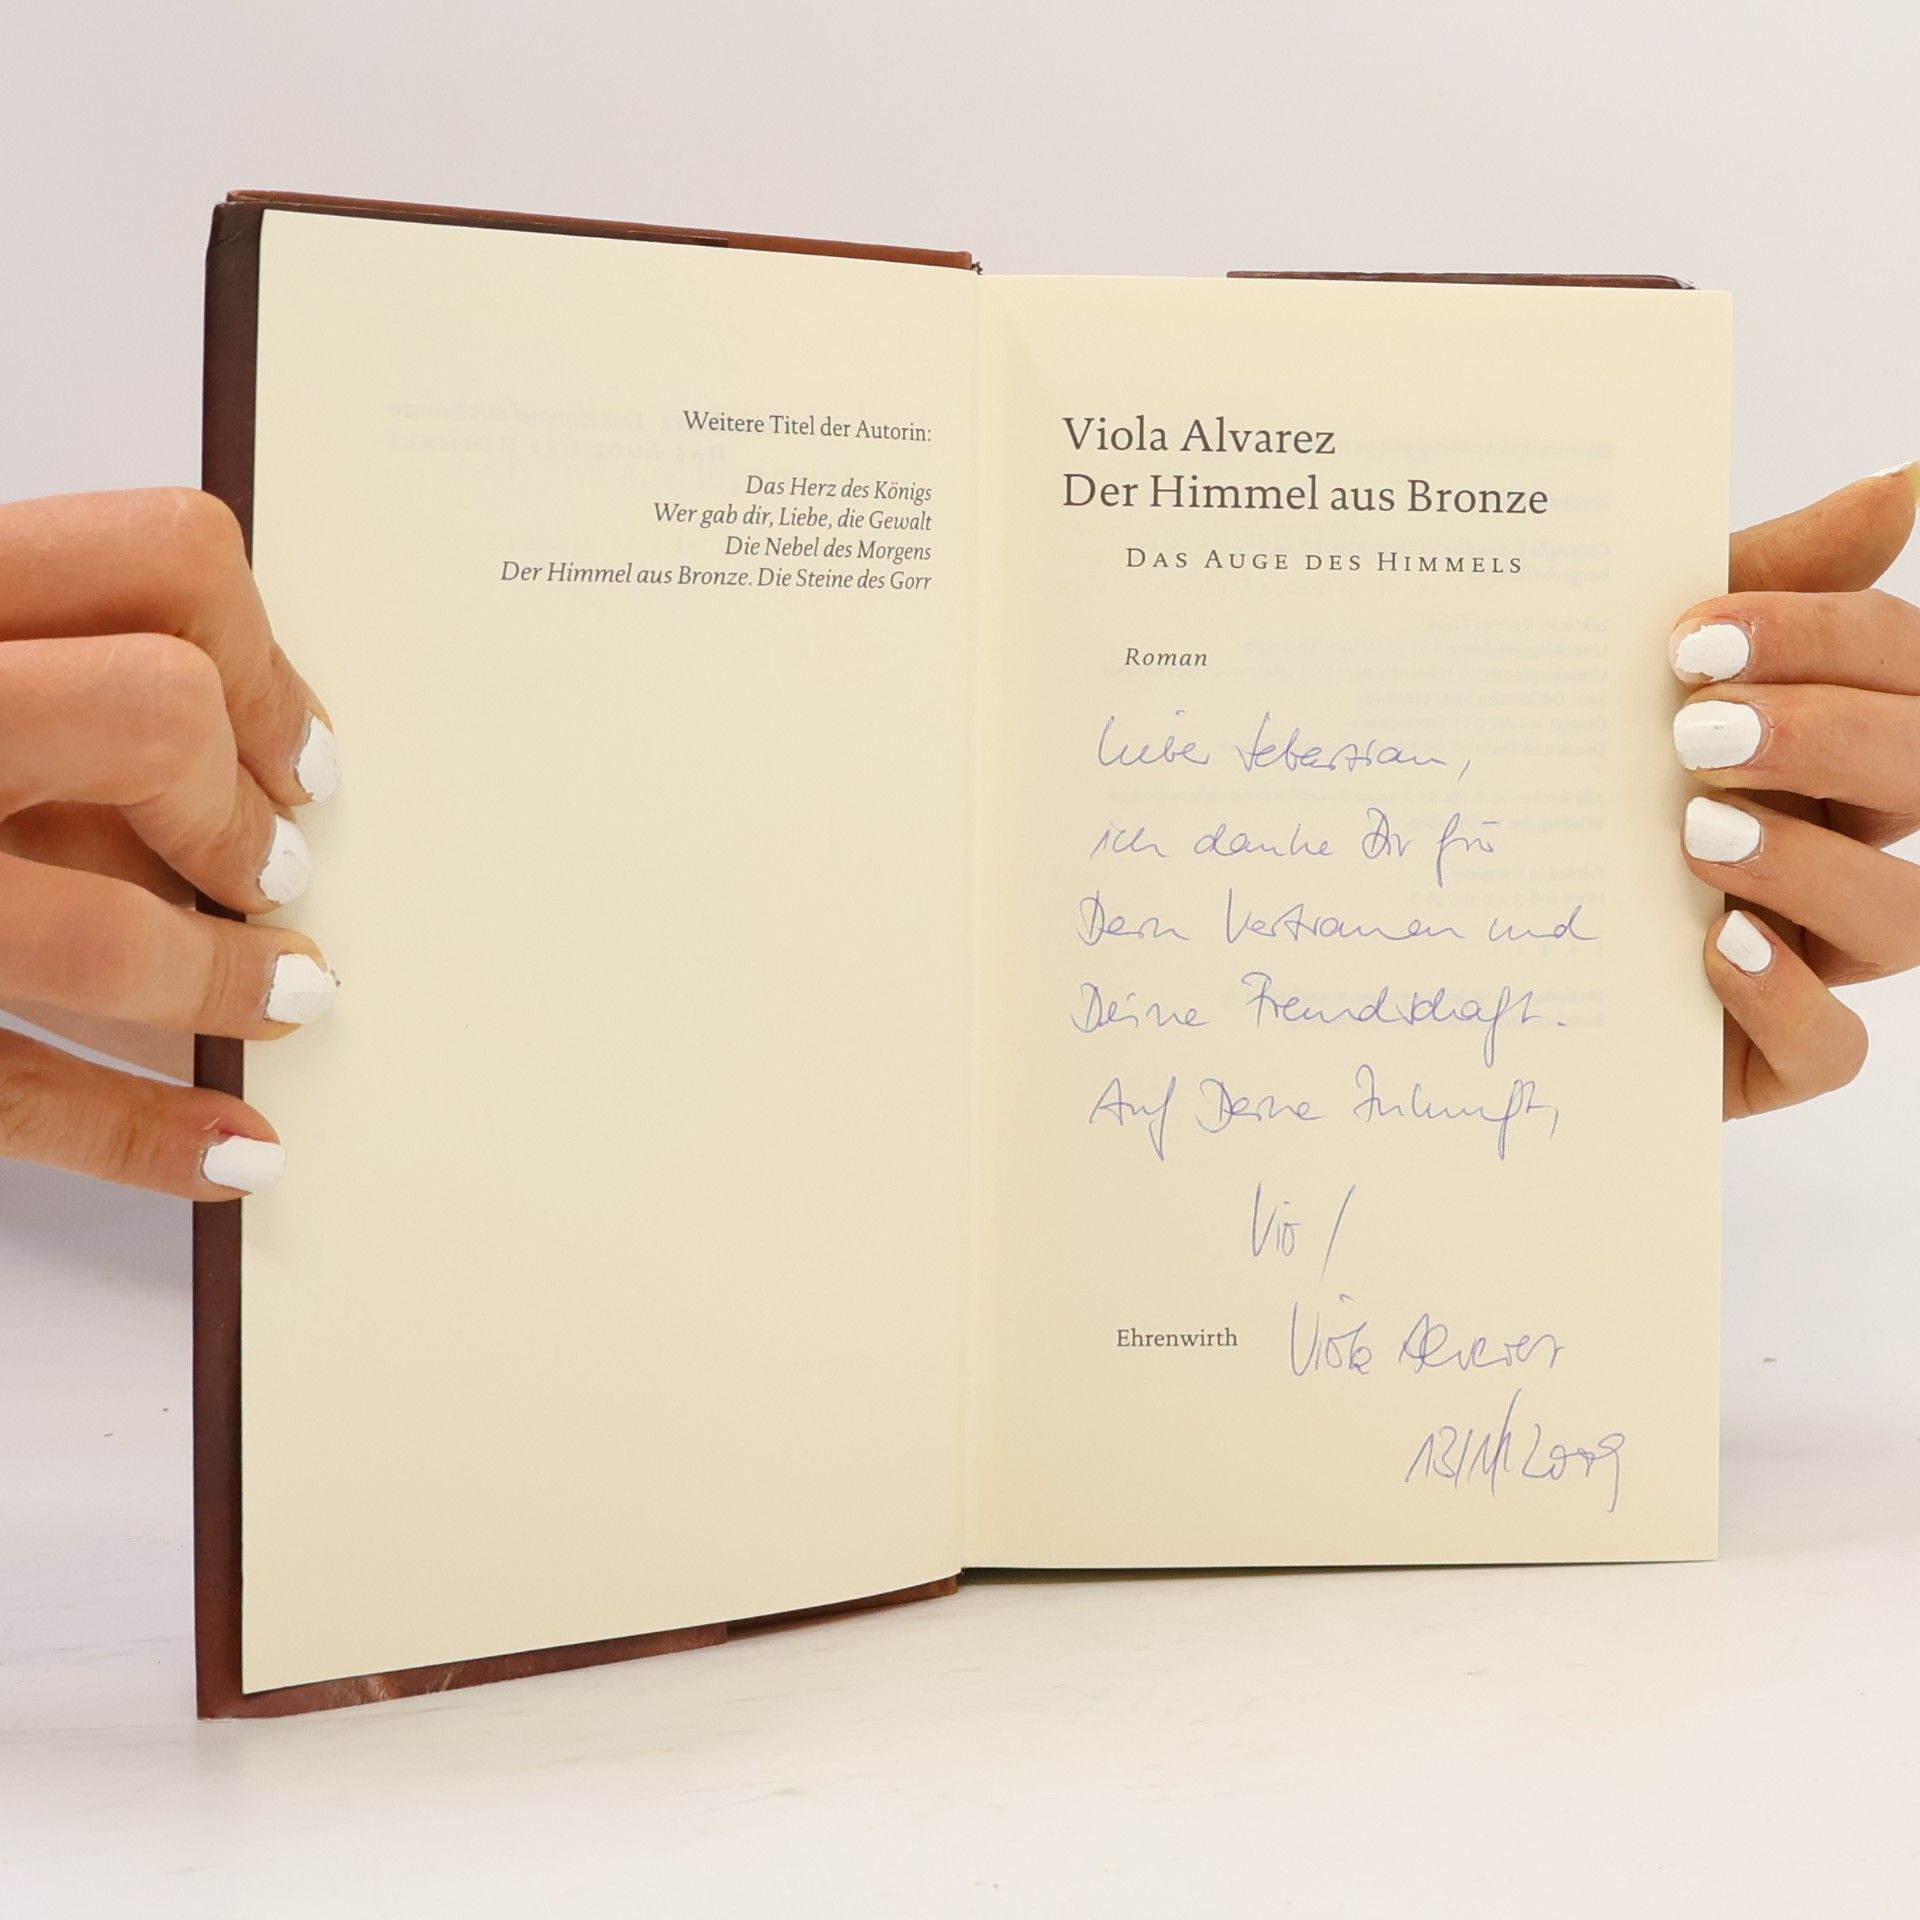 Weitere Titel der Autorin:
Das Herz des Königs
Wer gab dir, Liebe, die Gewalt
Die Nebel des Morgens
Der Himmel aus Bronze. Die Steine des Gorr
Viola Alvarez
Der Himmel aus Bronze
DAS AUGE DES HIMMELS
Roman
Lieber Sebastian,
ich danke Dir für
Dein Vertrauen und
Deine Freundschaft.
Auf Deine Zukunft,
Vio /
Ehrenwirth
Viola Alvarez
13/11/2009